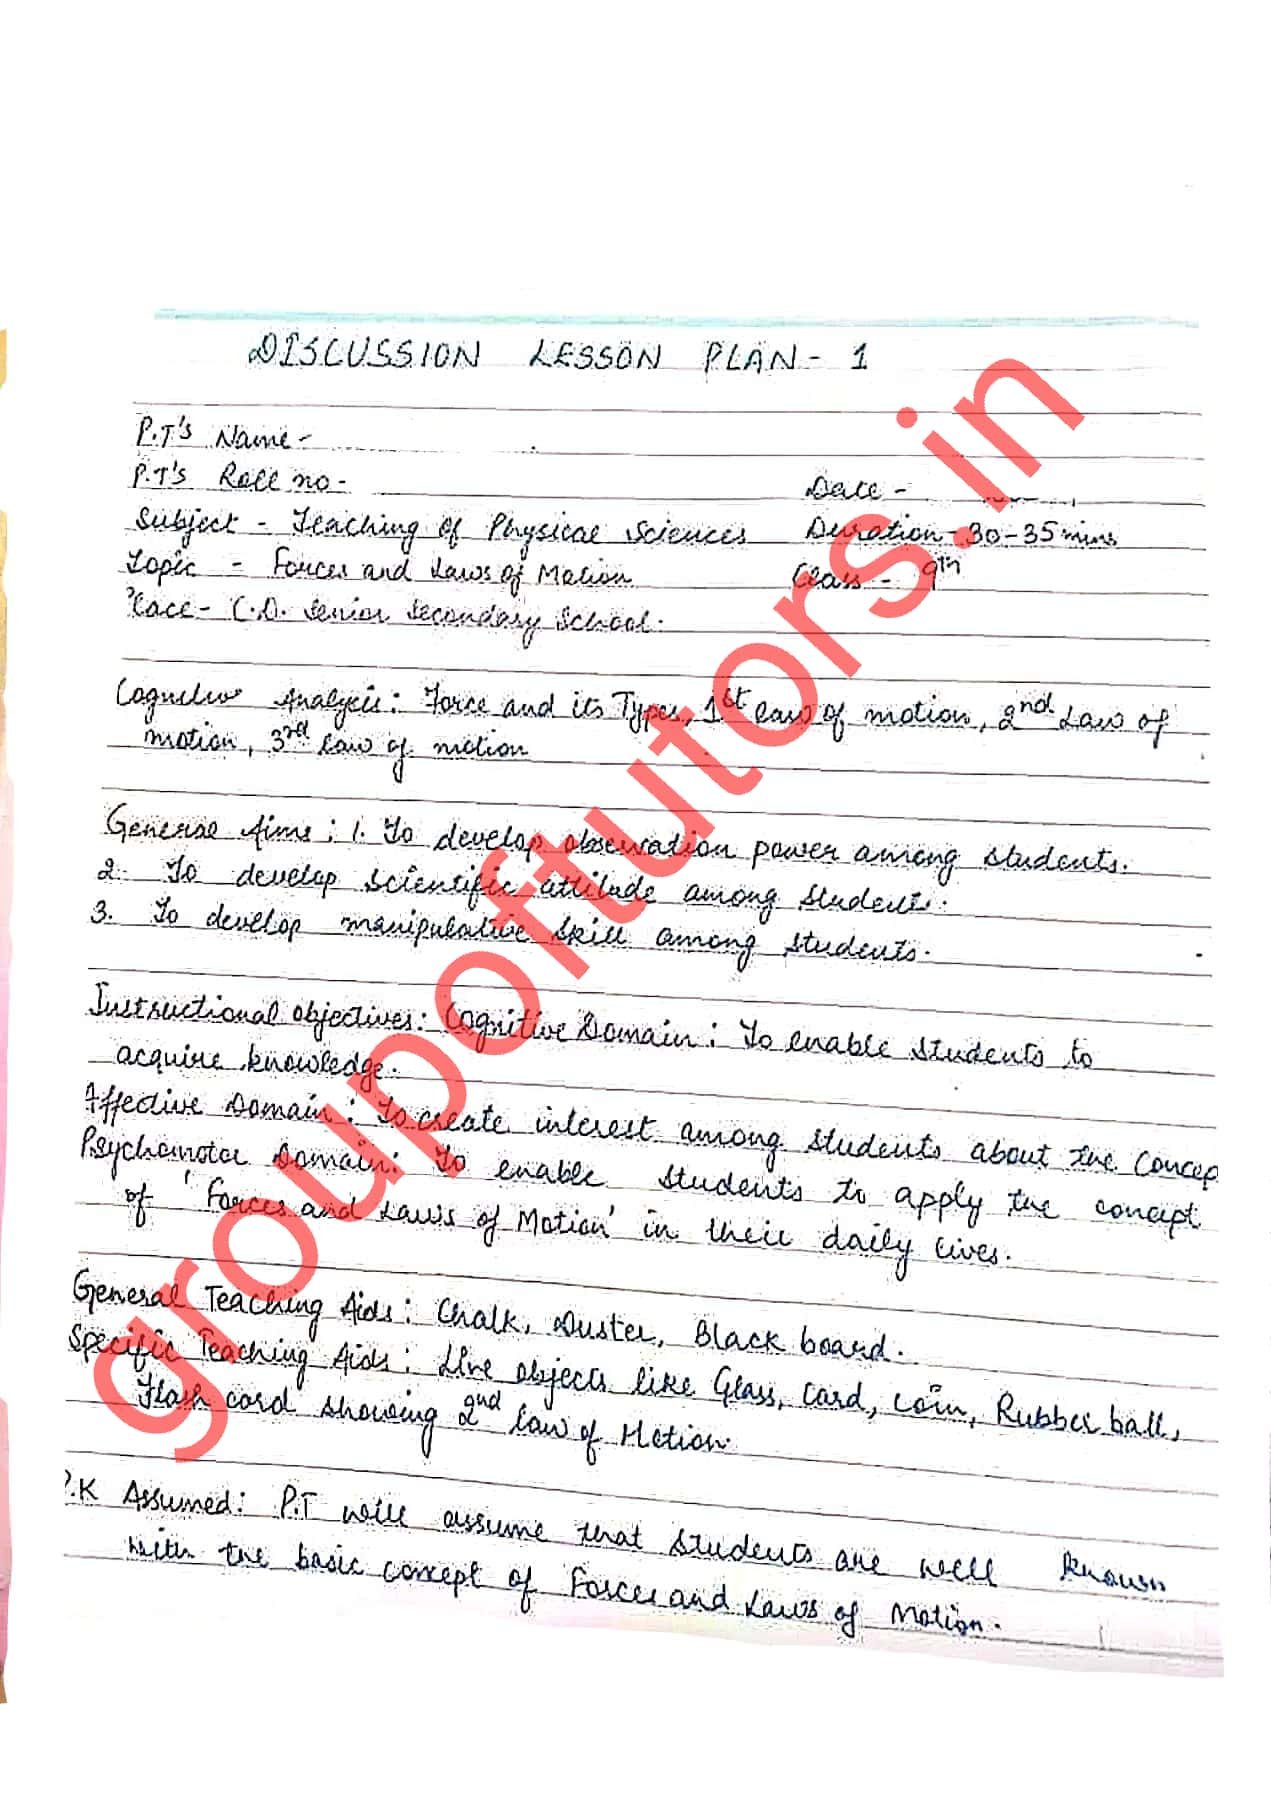 DISCUSSION LESSON PLAN - 1
P.T's Name -
P.T's Roll no -
Date -
Subject - Teaching of Physical Sciences Duration - 30-35 mins
Topic - Forces and Laws of Motion Class - 9th
Place - C.D. Senior Secondary School.
Cognitive Analysis: Force and its Types, 1st law of motion, 2nd Law of
motion, 3rd law of motion
General Aims: 1. To develop observation power among students.
2. To develop scientific attitude among students.
3. To develop manipulative skill among students.
Instructional objectives: Cognitive Domain: To enable students to
acquire knowledge.
Affective Domain: To create interest among students about the Concep
Psychomotor Domain: To enable students to apply the concept
of 'Forces and Laws of Motion' in their daily lives.
General Teaching Aids: Chalk, Duster, Black board.
Specific Teaching Aids: Live objects like Glass, Card, Coin, Rubber ball,
Flash card showing 2nd law of Motion.
P.K Assumed: P.T will assume that students are well known
with the basic concept of Forces and Laws of Motion.
groupoftutors.in